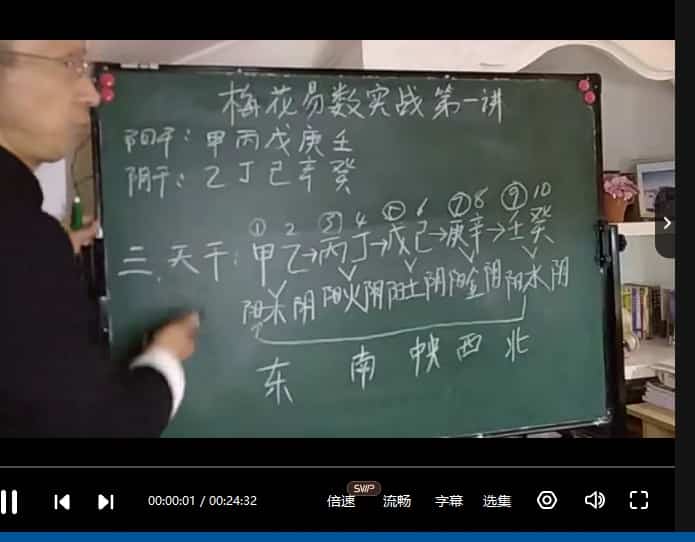 梅花易数实战第一讲
阳干：甲丙戊庚壬
阴干：乙丁己辛癸
① 2 ③ 4 ⑤ 6 ⑦ 8 ⑨ 10
二、天干：甲乙→丙丁→戊己→庚辛→壬癸
阳木阴 阳火阴 阳土阴 阳金阴 阳水阴
东 南 中央 西 北
00:00:01 / 00:24:32
倍速
SVIP
流畅
字幕
选集